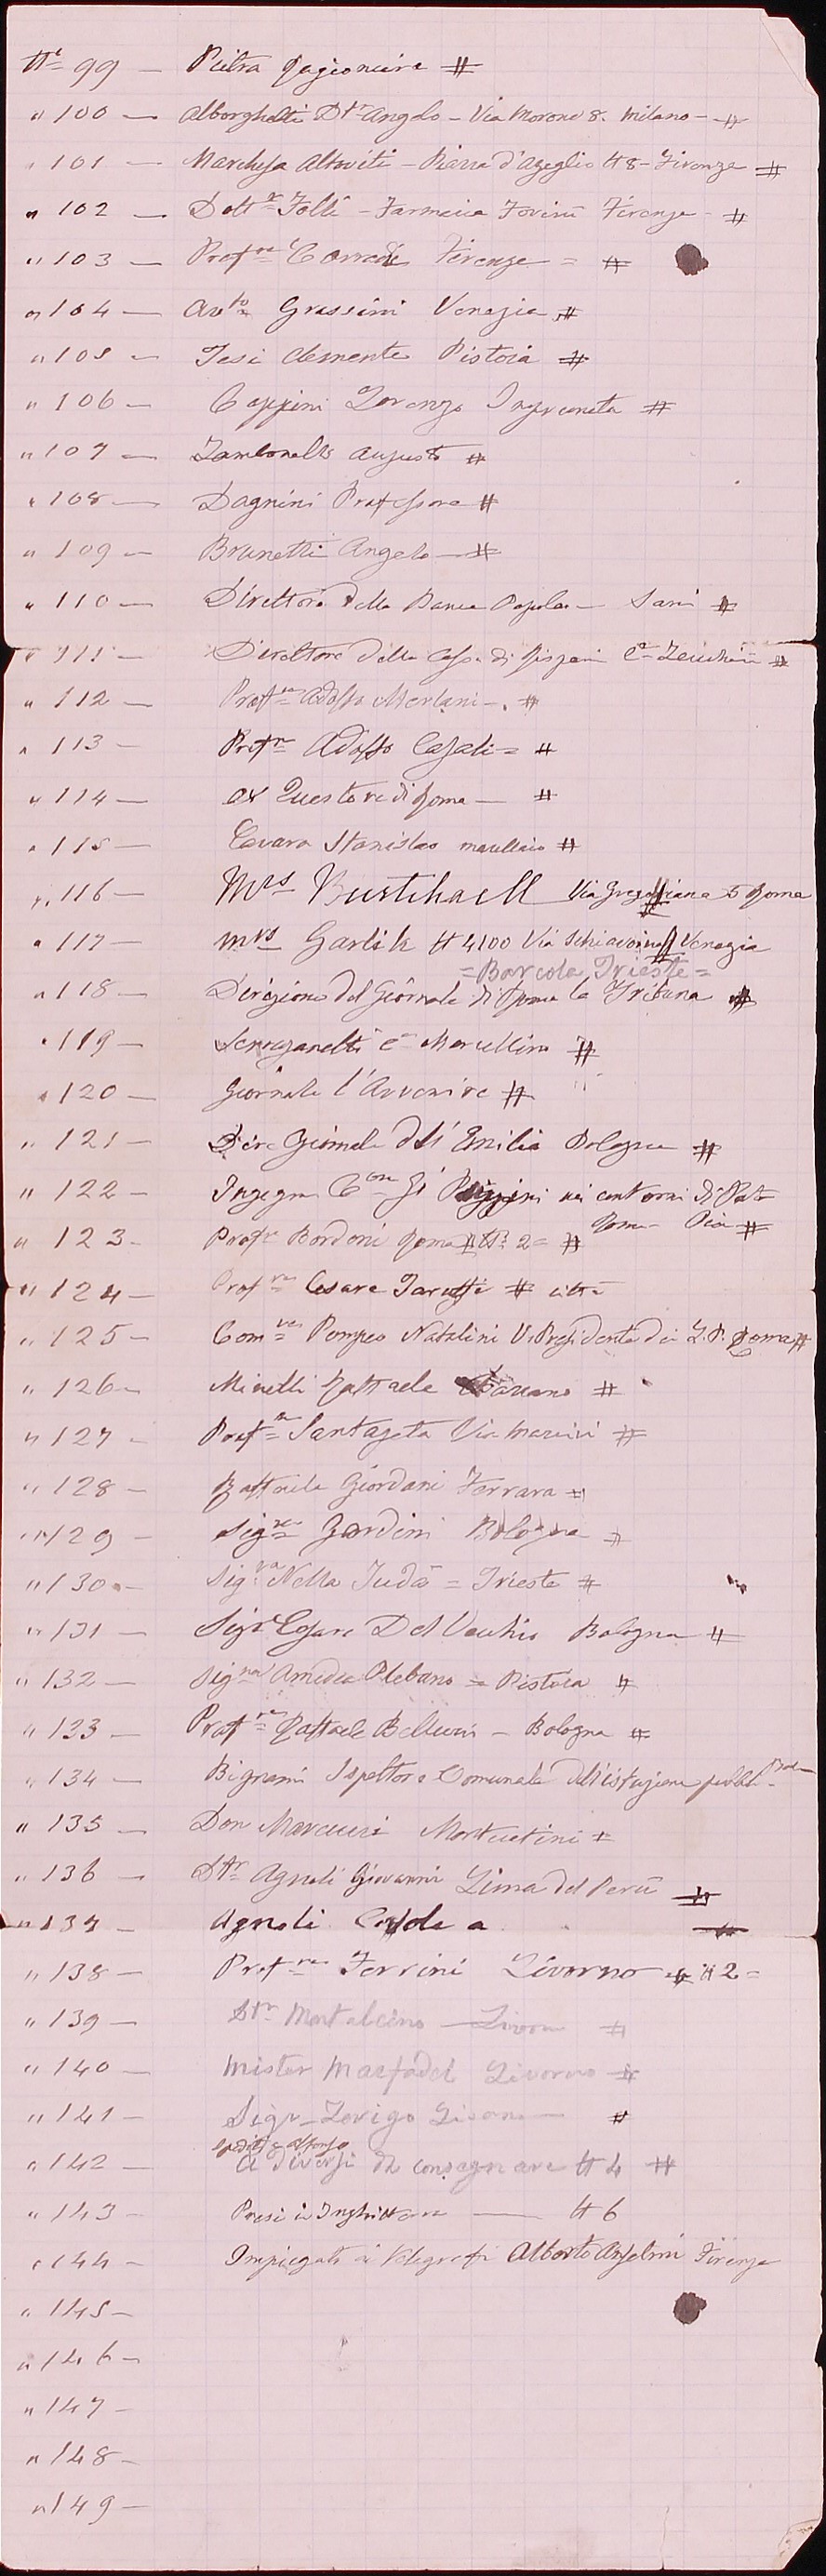 N° 99 — Pietra Ragioniere #
" 100 — Alborghetti Dtr Angelo – Via Morone 8. Milano – #
" 101 — Marchesa Altoviti – Piazza d'Azeglio N 8 – Firenze #
" 102 — Dottr Folli – Farmacia Firenze – #
" 103 — Profre Corradi Firenze = #
" 104 — Avto Grassini Venezia #
" 105 — Tesi Clemente Pistoia #
" 106 — Coppini Lorenzo Impruneta #
" 107 — Zambonelli Augusto #
" 108 — Dagnini Professore #
" 109 — Brunetti Angelo — #
" 110 — Direttore della Banca Popolare — Sani #
" 111 — Direttore della Cassa di Risparmi Ce Zucchini #
" 112 — Profre Adolfo Merlani –. #
" 113 — Profre Adolfo Casali = #
" 114 — ex Questore di Roma — #
" 115 — Cavara Stanislao macellaio #
" 116 — Mrs Via Gregoriana 5 Roma
" 117 — Mrs Garlik N 4100 Via Schiavoni # Venezia
= Barcola Trieste =
" 118 — Direzione del Giornale di Roma la Tribuna #
" 119 — Ce Marcellino #
" 120 — Giornale l'Avvenire #
" 121 — Dire Giornale dell'Emilia Bologna #
" 122 — Ingegn Ccone Gi nei contorni di
Roma – #
" 123 – Profre Bordoni Roma # N° 2 = #
" 124 — Profre Cesare Taruffi # città
" 125 — Comre Pompeo Natalini V. Presidente dei Roma #
" 126 — Minelli Raffaele #
" 127 – Profre Santagata Via Mazzini #
" 128 – Raffaele Giordani Ferrara #
" 129 – Sigra Zardini Bologna #
" 130 – Sigra Nella Judà = Trieste #
" 131 — Sigr Cesare Del Vecchio Bologna #
" 132 — Signor Amedeo Plebano = Pistoia #
" 133 — Profre Raffaele Belluzzi – Bologna #
" 134 — Bignami Ispettore Comunale dell'istruzione pubbl.
" 135 — Don Marcucci Montecatini #
" 136 — Dtr Agnoli Giovanni Lima del Perù #
" 137 — Agnoli #
" 138 — Profre Ferrini Livorno # N 2 =
" 139 — Dtr Montalcino — Livorno #
" 140 — Mister Livorno #
" 141 — Sigr #
" 142 — A diversi da consegnare N 4 #
" 143 — Presi in Inghilterra — N 6
" 144 — Impiegato ai telegrafi Alberto Anselmi Firenze
" 145 –
" 146 –
" 147 –
" 148 –
" 149 –